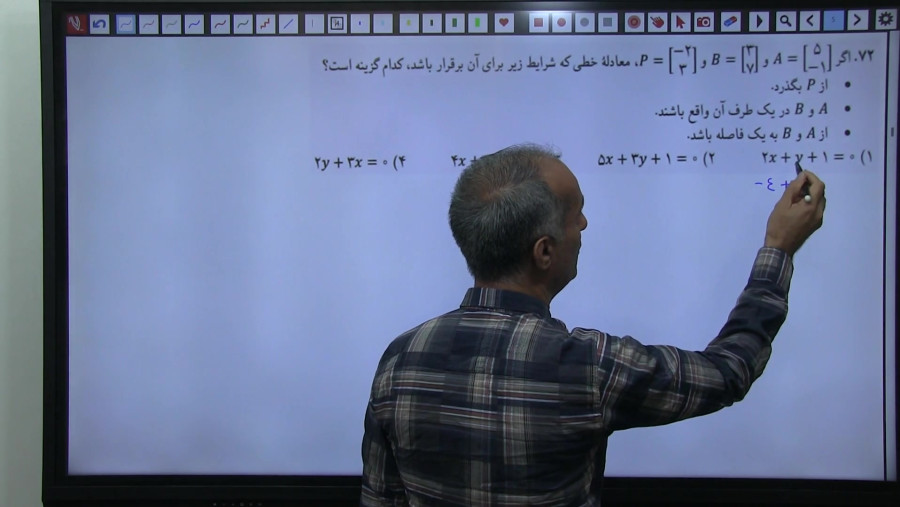 ۷۲. اگر A = [۵ −۱] و B = [۳ ۷] و P = [−۲ ۳]، معادلهٔ خطی که شرایط زیر برای آن برقرار باشد، کدام گزینه است؟
• از P بگذرد.
• A و B در یک طرف آن واقع باشند.
• از A و B به یک فاصله باشد.
۱) ۲x + y + ۱ = ۰ ۲) ۵x + ۳y + ۱ = ۰ ۴x + ۴) ۲y + ۳x = ۰
−٤ +